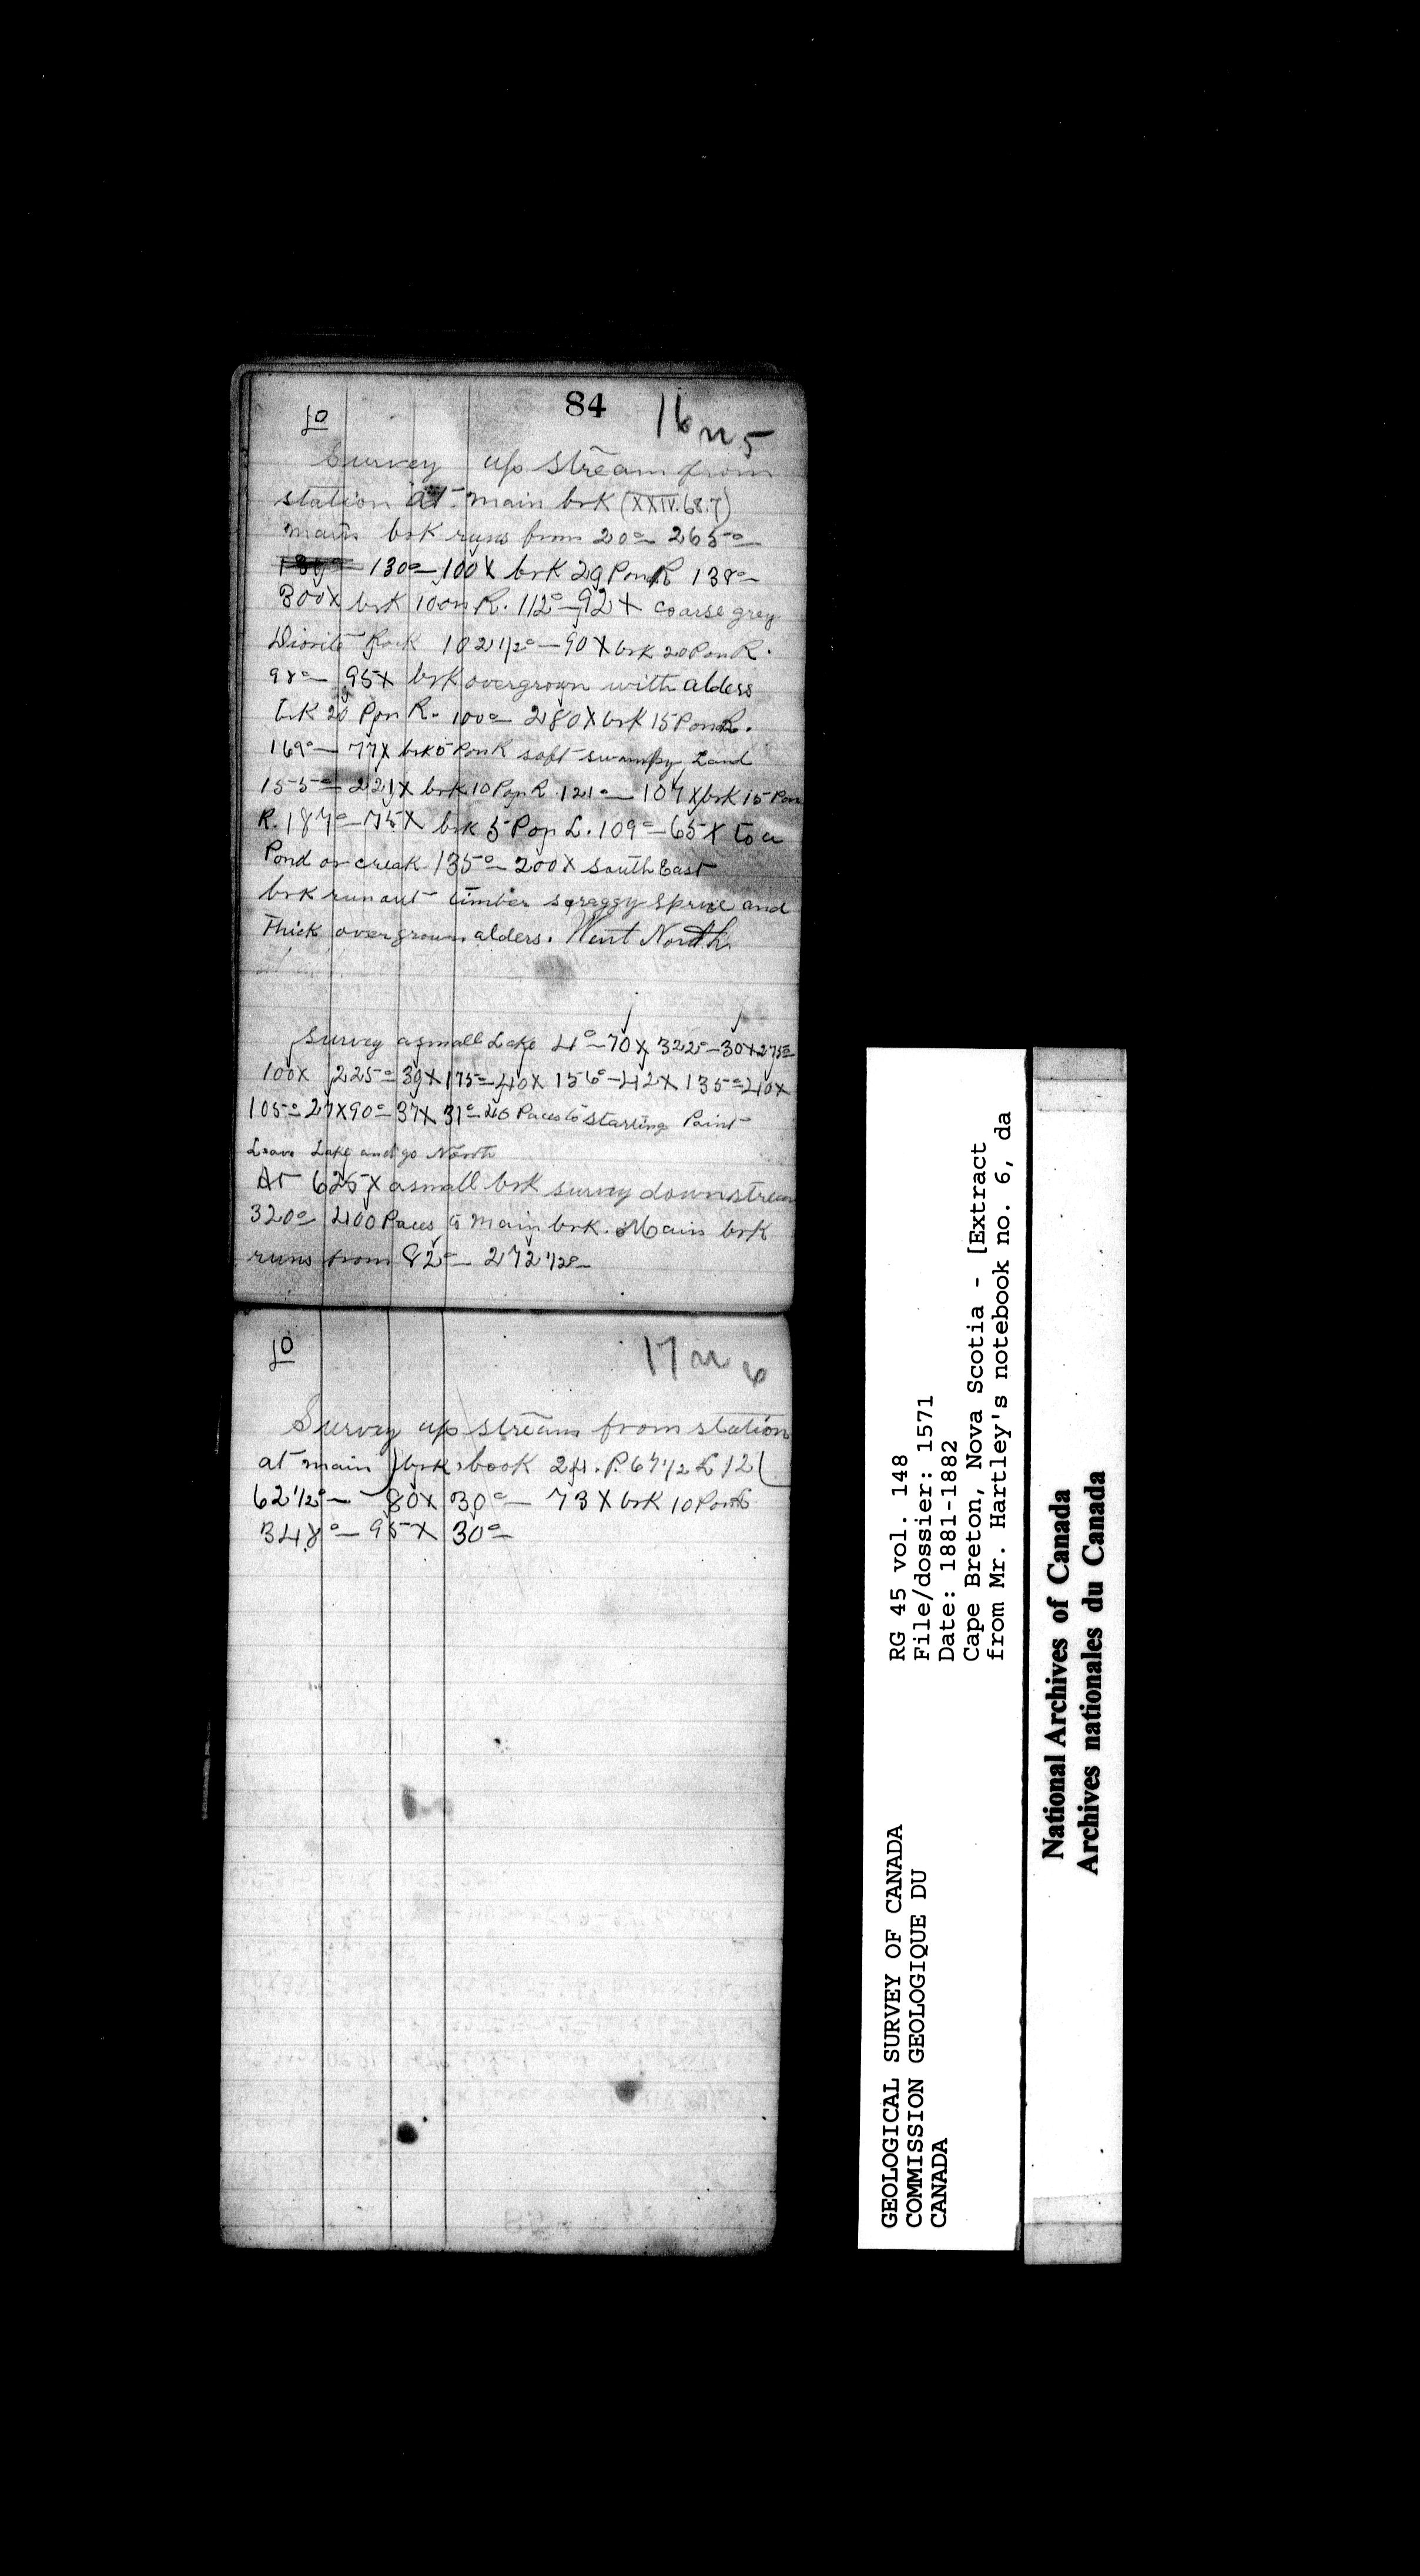 84
10
16 m 5
Survey up stream from
station at main brk (XXIV.68.7)
main brk runs from 20°– 265°–
130°–100X brk 29 P on R 138°–
300X brk 10 on R. 112°–92X coarse grey
Diorite Rock 102 1/2°–90X brk 20 P on R.
98°– 95X brk overgrown with alders
brk 20 P on R. 100°– 280X brk 15 P on R.
169°– 77X brk 5 P on R soft swampy Land
155°– 221X brk 10 P on R. 121°– 107X brk 15 P on
R. 187°–75X brk 5 P on L. 109°–65X to a
Pond or creak 135°– 200X South East
brk run out timber scraggy Spruce and
Thick overgrown alders. Went North.
Survey a small Lake 4°–70X 322°–30X 275°–
100X 225°–39X 175°–40X 156°–42X 135°–40X
105°–27X 90°–37X 31°–46 Paces to Starting Point
Leave Lake and go North
At 625X a small brk survey downstream
320°– 400 Paces to main brk. Main brk
runs from 82°– 272 1/2°–
10
17 m 6
Survey up stream from station
at main brk book 24. P. 67 1/2 L 12
62 1/2°– 80X 30°– 73X brk 10 P on
348°– 95X 30°–
GEOLOGICAL SURVEY OF CANADA
COMMISSION GEOLOGIQUE DU
CANADA
RG 45 vol. 148
File/dossier: 1571
Date: 1881-1882
Cape Breton, Nova Scotia - [Extract
from Mr. Hartley's notebook no. 6, da
National Archives of Canada
Archives nationales du Canada